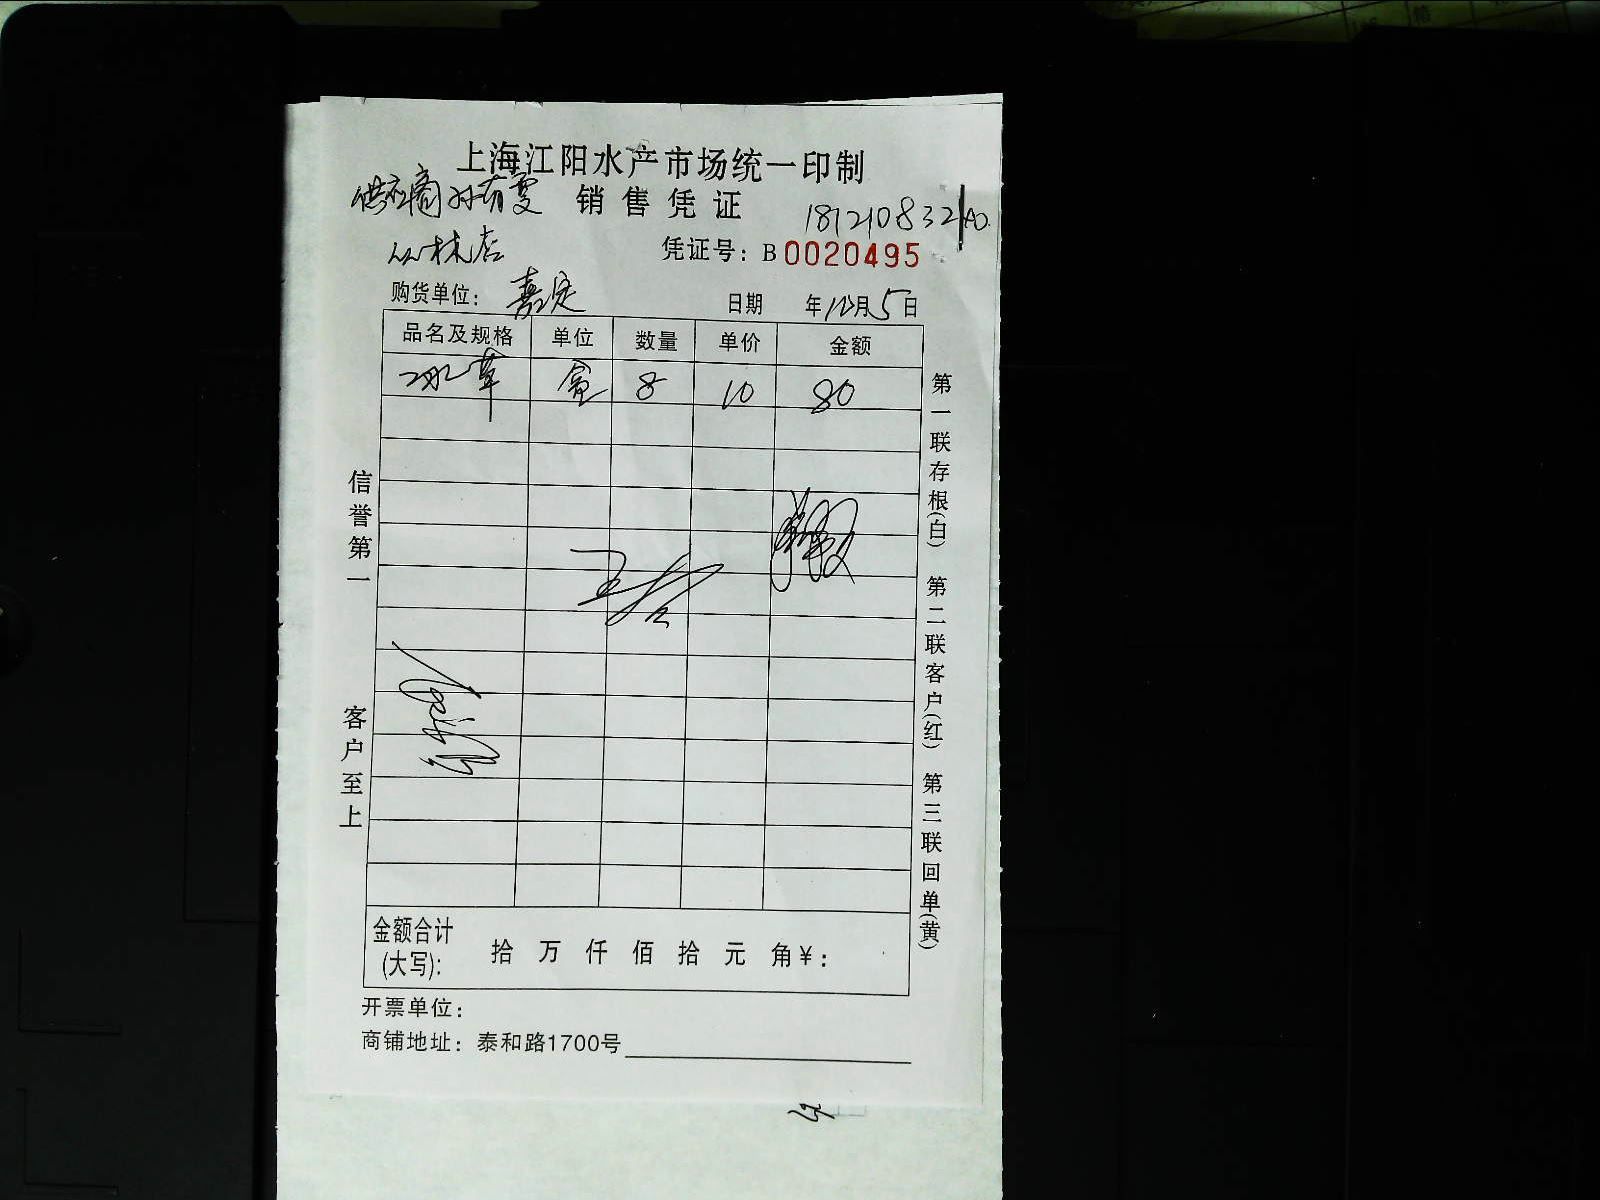 上海江阳水产市场统一印制
供应商孙有雯 销售凭证
丛林店 凭证号：B0020495
购货单位：嘉定 日期 年10月5日
品名及规格 单位 数量 单价 金额
冰草 盒 8 10 80
信誉第一 客户至上
第一联存根(白) 第二联客户(红) 第三联回单(黄)
金额合计(大写)： 拾 万 仟 佰 拾 元 角¥：
开票单位：
商铺地址：泰和路1700号